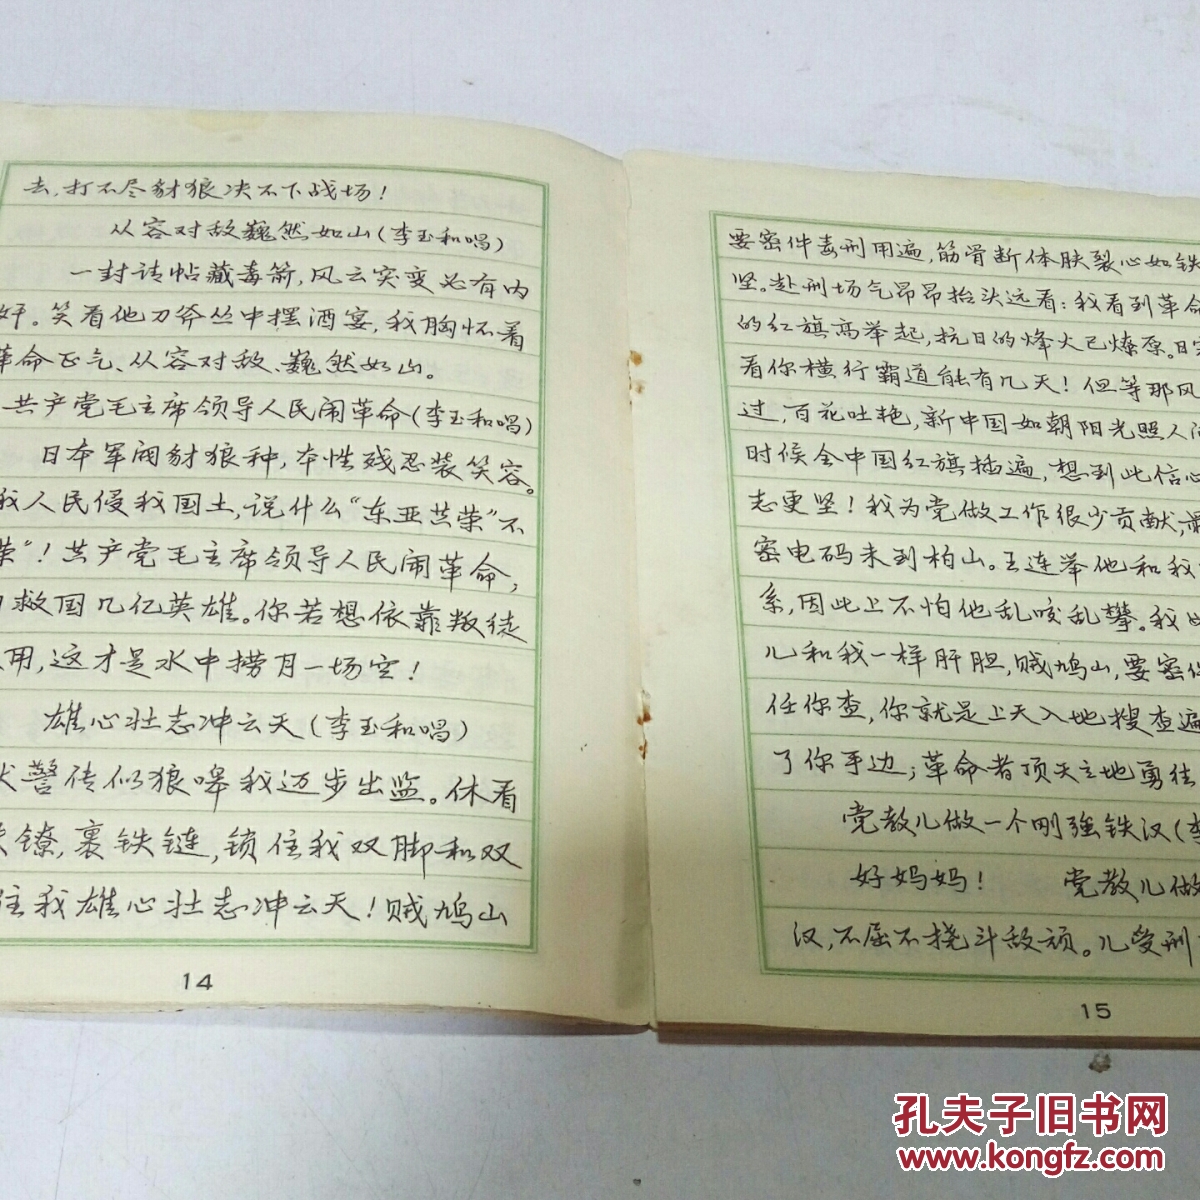 去,打不尽豺狼决不下战场!
从容对敌巍然如山(李玉和唱)
一封请帖藏毒箭,风云突变必有内
奸。笑看他刀斧丛中摆酒宴,我胸怀着
革命正气、从容对敌、巍然如山。
共产党毛主席领导人民闹革命(李玉和唱)
日本军阀豺狼种,本性残忍装笑容。
我人民侵我国土,说什么“东亚共荣”不
荣”!共产党毛主席领导人民闹革命,
救国几亿英雄。你若想依靠叛徒
用,这才是水中捞月一场空!
雄心壮志冲云天(李玉和唱)
狱警传似狼嗥我迈步出监。休看
镣,裹铁链,锁住我双脚和双
住我雄心壮志冲云天!贼鸠山
14
要密件毒刑用遍,筋骨断体肤裂心如铁
坚。赴刑场气昂昂抬头远看:我看到革命
的红旗高举起,抗日的烽火已燎原。日寇
看你横行霸道能有几天!但等那风
过,百花吐艳,新中国如朝阳光照人间
时候全中国红旗插遍,想到此信心
志更坚!我为党做工作很少贡献,最
密电码未到柏山。王连举他和我
系,因此上不怕他乱咬乱攀。我
儿和我一样肝胆,贼鸠山,要密件
任你查,你就是上天入地搜查遍
了你手边;革命者顶天立地勇往
党教儿做一个刚强铁汉(李
好妈妈! 党教儿做
汉,不屈不挠斗敌顽。儿受刑
15
孔夫子旧书网
www.kongfz.com